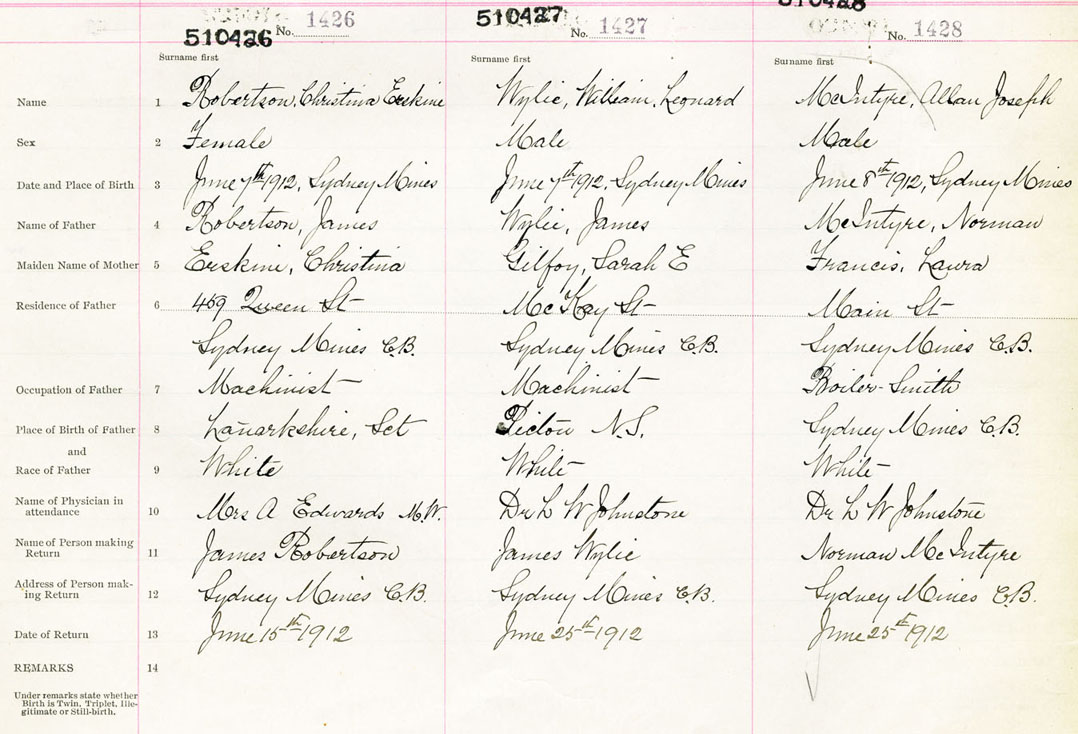 510426 No. 1426 510427 No. 1427 510428 No. 1428
Surname first Surname first Surname first
Name 1 Robertson, Christina Erskine Wylie, William, Leonard McIntyre, Allan Joseph
Sex 2 Female Male Male
Date and Place of Birth 3 June 7th 1912, Sydney Mines June 7th 1912, Sydney Mines June 8th 1912, Sydney Mines
Name of Father 4 Robertson, James Wylie, James McIntyre, Norman
Maiden Name of Mother 5 Erskine, Christina Gilfoy, Sarah E Francis, Laura
Residence of Father 6 459 Queen St McKay St Main St
Sydney Mines C.B. Sydney Mines C.B. Sydney Mines C.B.
Occupation of Father 7 Machinist Machinist Boiler-Smith
Place of Birth of Father 8 Lanarkshire, Sct Pictou N.S. Sydney Mines C.B.
and
Race of Father 9 White White White
Name of Physician in
attendance 10 Mrs A Edwards M.W. Dr L W Johnstone Dr L W Johnstone
Name of Person making
Return 11 James Robertson James Wylie Norman McIntyre
Address of Person mak-
ing Return 12 Sydney Mines C.B. Sydney Mines C.B. Sydney Mines C.B.
Date of Return 13 June 15th 1912 June 25th 1912 June 25th 1912
REMARKS 14
Under remarks state whether
Birth is Twin, Triplet, Ille-
gitimate or Still-birth.